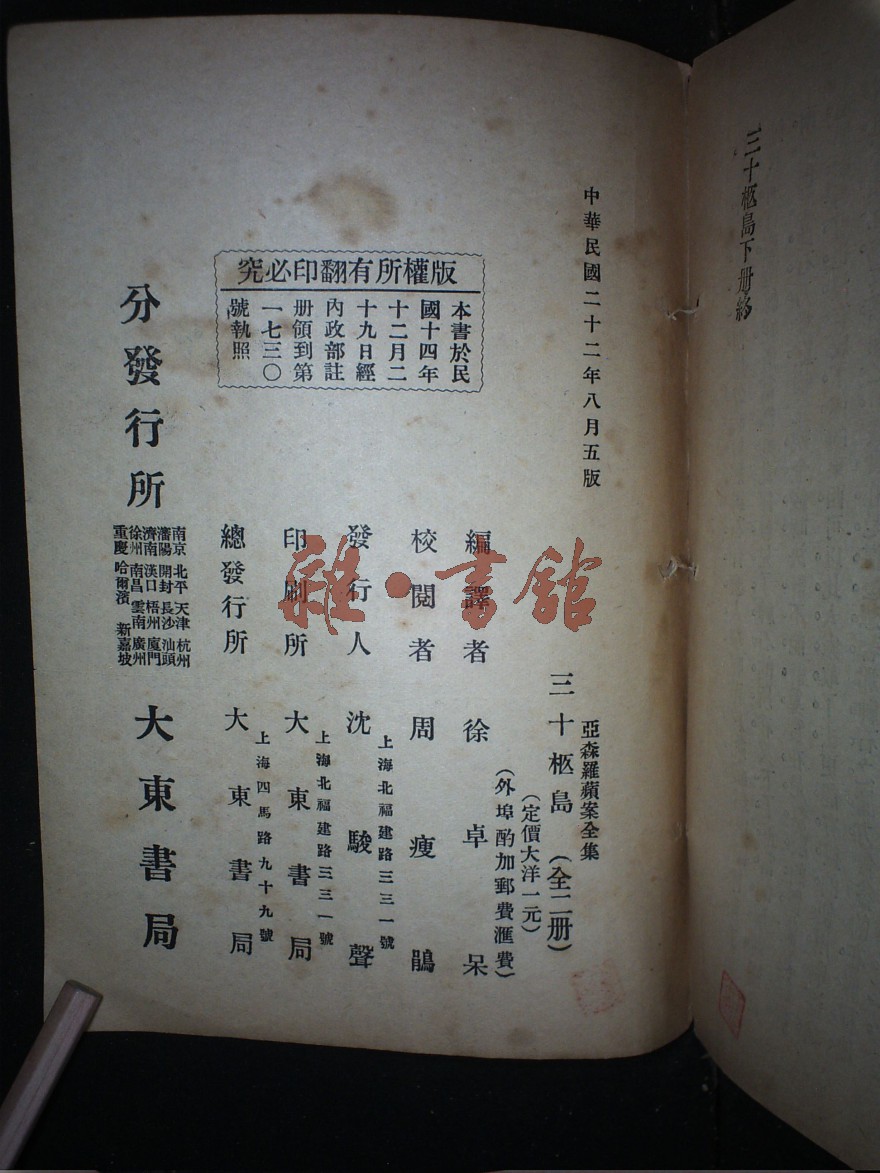 三十柩島下册終
中華民國二十二年八月五版
亞森羅蘋案全集
三十柩島（全二册）
（定價大洋一元）
（外埠酌加郵費滙費）
編譯者　徐卓呆
校閱者　周瘦鵑
發行人　沈駿聲
上海北福建路三三一號
印刷所　大東書局
上海北福建路三三一號
總發行所　大東書局
上海四馬路九十九號
版權所有翻印必究
本書於民
國十四年
十二月二
十九日經
內政部註
册領到第
一七三〇
號執照
分發行所　大東書局
南京　北平　天津　杭州
瀋陽　開封　長沙　汕頭
濟南　漢口　梧州　廈門
徐州　南昌　雲南　廣州
重慶　哈爾濱　新嘉坡
雜·書館